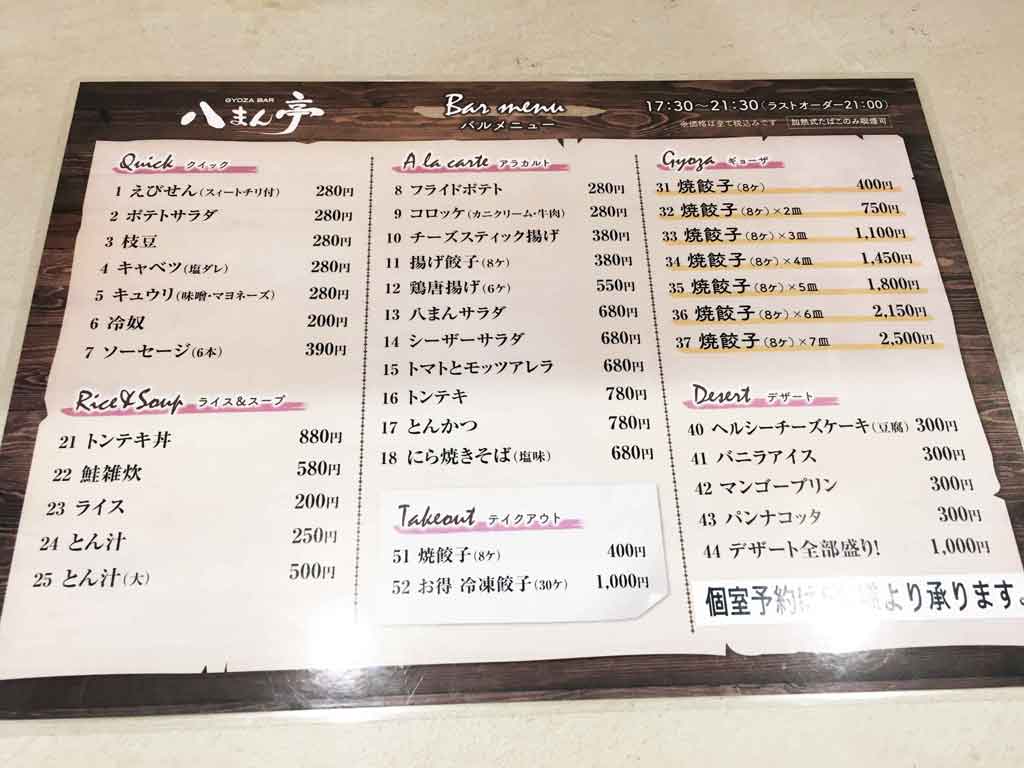 GYOZA BAR
八まん亭
Bar menu
バルメニュー
17:30～21:30(ラストオーダー21:00)
※価格は全て税込みです 加熱式たばこのみ喫煙可
Quick クイック
1 えびせん(スィートチリ付) 280円
2 ポテトサラダ 280円
3 枝豆 280円
4 キャベツ(塩ダレ) 280円
5 キュウリ(味噌・マヨネーズ) 280円
6 冷奴 200円
7 ソーセージ(6本) 390円
Rice&Soup ライス&スープ
21 トンテキ丼 880円
22 鮭雑炊 580円
23 ライス 200円
24 とん汁 250円
25 とん汁(大) 500円
A la carte アラカルト
8 フライドポテト 280円
9 コロッケ(カニクリーム・牛肉) 280円
10 チーズスティック揚げ 380円
11 揚げ餃子(8ケ) 380円
12 鶏唐揚げ(6ケ) 550円
13 八まんサラダ 680円
14 シーザーサラダ 680円
15 トマトとモッツアレラ 680円
16 トンテキ 780円
17 とんかつ 780円
18 にら焼きそば(塩味) 680円
Takeout テイクアウト
51 焼餃子(8ケ) 400円
52 お得 冷凍餃子(30ケ) 1,000円
Gyoza ギョーザ
31 焼餃子(8ケ) 400円
32 焼餃子(8ケ)×2皿 750円
33 焼餃子(8ケ)×3皿 1,100円
34 焼餃子(8ケ)×4皿 1,450円
35 焼餃子(8ケ)×5皿 1,800円
36 焼餃子(8ケ)×6皿 2,150円
37 焼餃子(8ケ)×7皿 2,500円
Desert デザート
40 ヘルシーチーズケーキ(豆腐) 300円
41 バニラアイス 300円
42 マンゴープリン 300円
43 パンナコッタ 300円
44 デザート全部盛り! 1,000円
個室予約は より承ります。